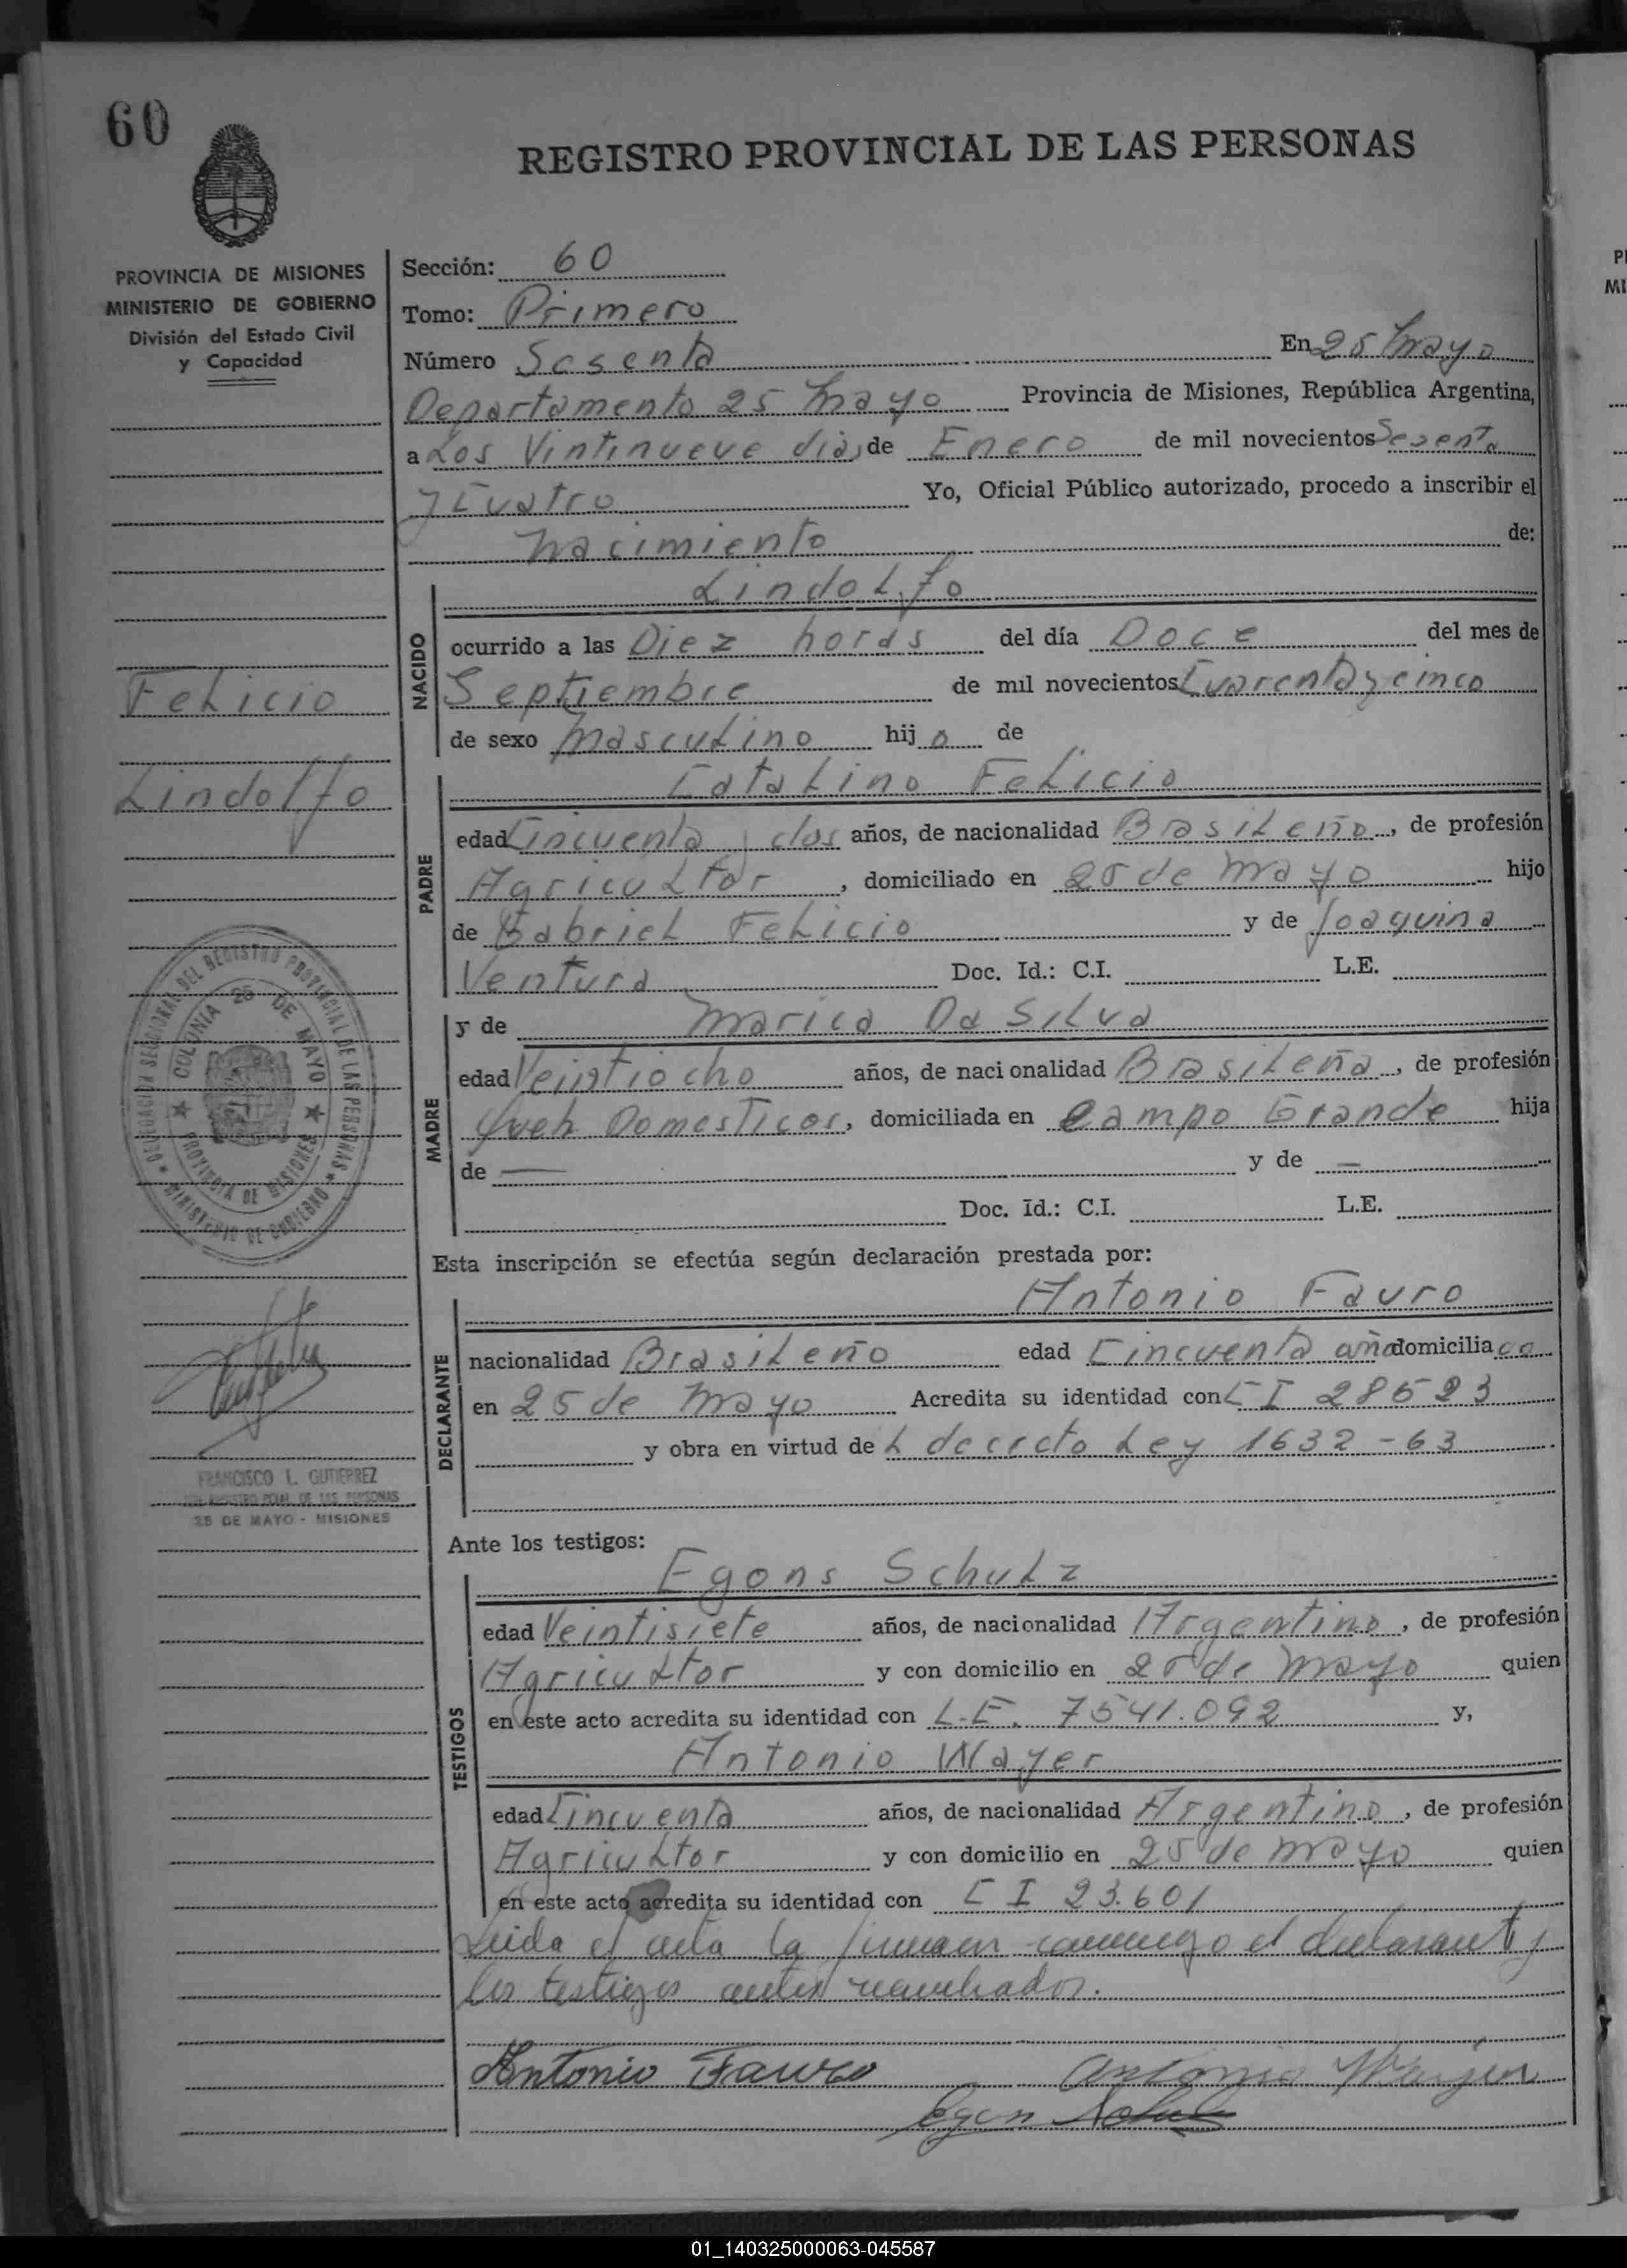 60
REGISTRO PROVINCIAL DE LAS PERSONAS
PROVINCIA DE MISIONES
MINISTERIO DE GOBIERNO
División del Estado Civil
y Capacidad
Sección: 60
Tomo: Primero
Número Sesenta En 25 Mayo
Departamento 25 Mayo Provincia de Misiones, República Argentina,
a Los Vintinueve dias de Enero de mil novecientos Sesenta
y Cuatro Yo, Oficial Público autorizado, procedo a inscribir el
Nacimiento de:
Lindolfo
NACIDO
ocurrido a las Diez horas del día Doce del mes de
Septiembre de mil novecientos Cuarenta y cinco
de sexo Masculino hijo de
Felicio
Lindolfo
Catalino Felicio
PADRE
edad Cincuenta y dos años, de nacionalidad Brasileño, de profesión
Agricultor, domiciliado en 25 de Mayo hijo
de Gabriel Felicio y de Joaquina
Ventura Doc. Id.: C.I. L.E.
y de Marica Da Silva
MADRE
edad Veintiocho años, de nacionalidad Brasileña, de profesión
Queh Domesticos, domiciliada en Campo Grande hija
de — y de —
Doc. Id.: C.I. L.E.
DELEGACION SECCIONAL DEL REGISTRO PROVINCIAL DE LAS PERSONAS
MINISTERIO DE GOBIERNO
COLONIA 25 DE MAYO
PROVINCIA DE MISIONES
Esta inscripción se efectúa según declaración prestada por:
Antonio Fauro
DECLARANTE
nacionalidad Brasileño edad Cincuenta años domiciliado
en 25 de Mayo Acredita su identidad con C I 28523
y obra en virtud de L decreto Ley 1632-63
FRANCISCO L. GUTIERREZ
REGISTRO PCIAL DE LAS PERSONAS
25 DE MAYO - MISIONES
Ante los testigos:
Egons Schulz
TESTIGOS
edad Veintisiete años, de nacionalidad Argentino, de profesión
Agricultor y con domicilio en 25 de Mayo quien
en este acto acredita su identidad con L.E. 7541.092 y,
Antonio Wayer
edad Cincuenta años, de nacionalidad Argentino, de profesión
Agricultor y con domicilio en 25 de Mayo quien
en este acto acredita su identidad con C I 23.601
Leida el acta la firman conmigo el declarante y
los testigos antes nombrados.
Antonio Fauro Antonio
Egon
01_140325000063-045587